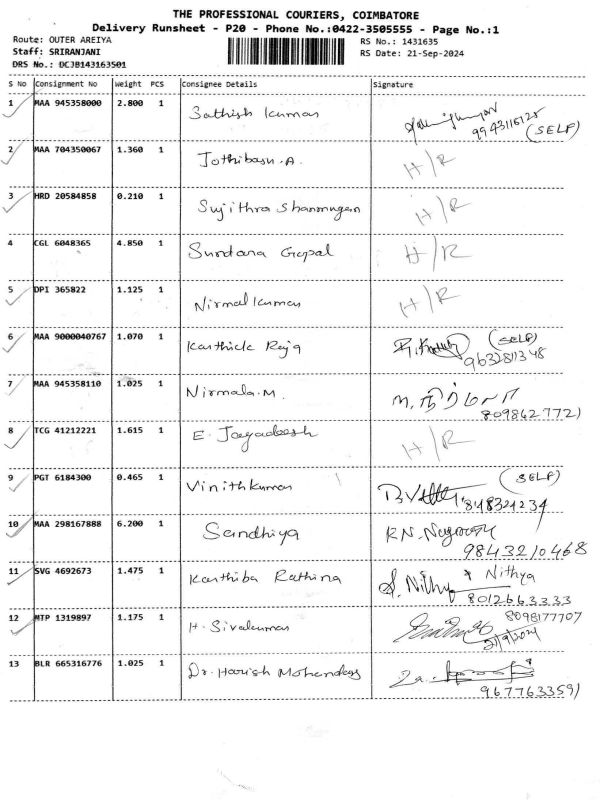 THE PROFESSIONAL COURIERS, COIMBATORE
Delivery Runsheet - P20 - Phone No.:0422-3505555 - Page No.:1
Route: OUTER AREIYA RS No.: 1431635
Staff: SRIRANJANI RS Date: 21-Sep-2024
DRS No.: DCJB143163501
S No Consignment No Weight PCS Consignee Details Signature
1 MAA 945358000 2.800 1 Sathish Kumar 9943116125 (SELF)
2 MAA 704350067 1.360 1 Jothibasu.A. H/R
3 HRD 20584858 0.210 1 Sujithra Shanmugam H/R
4 CGL 6048365 4.850 1 Sundara Gopal H/R
5 DPI 365822 1.125 1 Nirmal Kumar H/R
6 MAA 9000040767 1.070 1 Karthick Raja (SELF)
9632811348
7 MAA 945358110 1.025 1 Nirmala.M. ம.நிர்மலா
8098627721
8 TCG 41212221 1.615 1 E. Jayadeesh H/R
9 PGT 6184300 0.465 1 Vinithkumar (SELF)
848321234
10 MAA 298167888 6.200 1 Sandhiya R.N.
9843210468
11 SVG 4692673 1.475 1 Karthiba Rathina S. Nithya Nithya
8012663333
12 MTP 1319897 1.175 1 H. Sivakumar 8098177707
21/9/2024
13 BLR 665316776 1.025 1 Dr. Harish Mohandas
9677633591